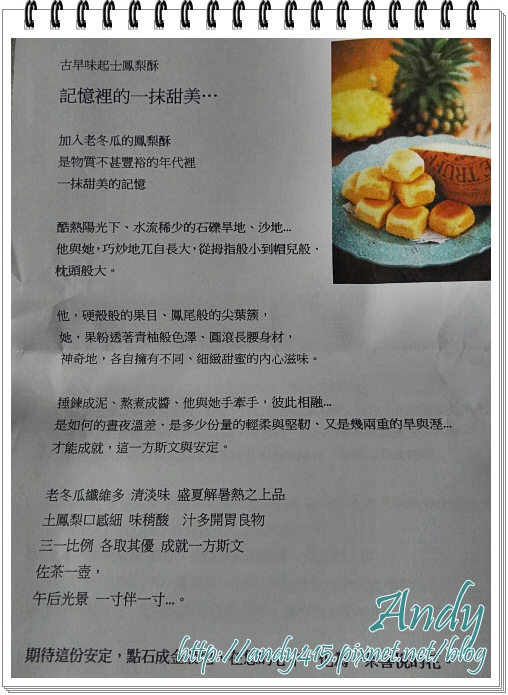 古早味起士鳳梨酥
記憶裡的一抹甜美…
加入老冬瓜的鳳梨酥
是物質不甚豐裕的年代裡
一抹甜美的記憶
酷熱陽光下、水流稀少的石礫旱地、沙地...
他與她，巧妙地兀自長大，從拇指般小到帽兒般、
枕頭般大。
他，硬殼般的果目、鳳尾般的尖葉簇，
她，果粉透著青柚般色澤、圓滾長腰身材，
神奇地，各自擁有不同、細緻甜蜜的內心滋味。
捶鍊成泥、熬煮成醬、他與她手牽手，彼此相融...
是如何的晝夜溫差、是多少份量的輕柔與堅韌、又是幾兩重的旱與溼...
才能成就，這一方斯文與安定。
老冬瓜纖維多 清淡味 盛夏解暑熱之上品
土鳳梨口感細 味稍酸 汁多開胃良物
三一比例 各取其優 成就一方斯文
佐茶一壺，
午后光景 一寸伴一寸...。
期待這份安定，點石成金
Andy
http://andy415.pixnet.net/blog